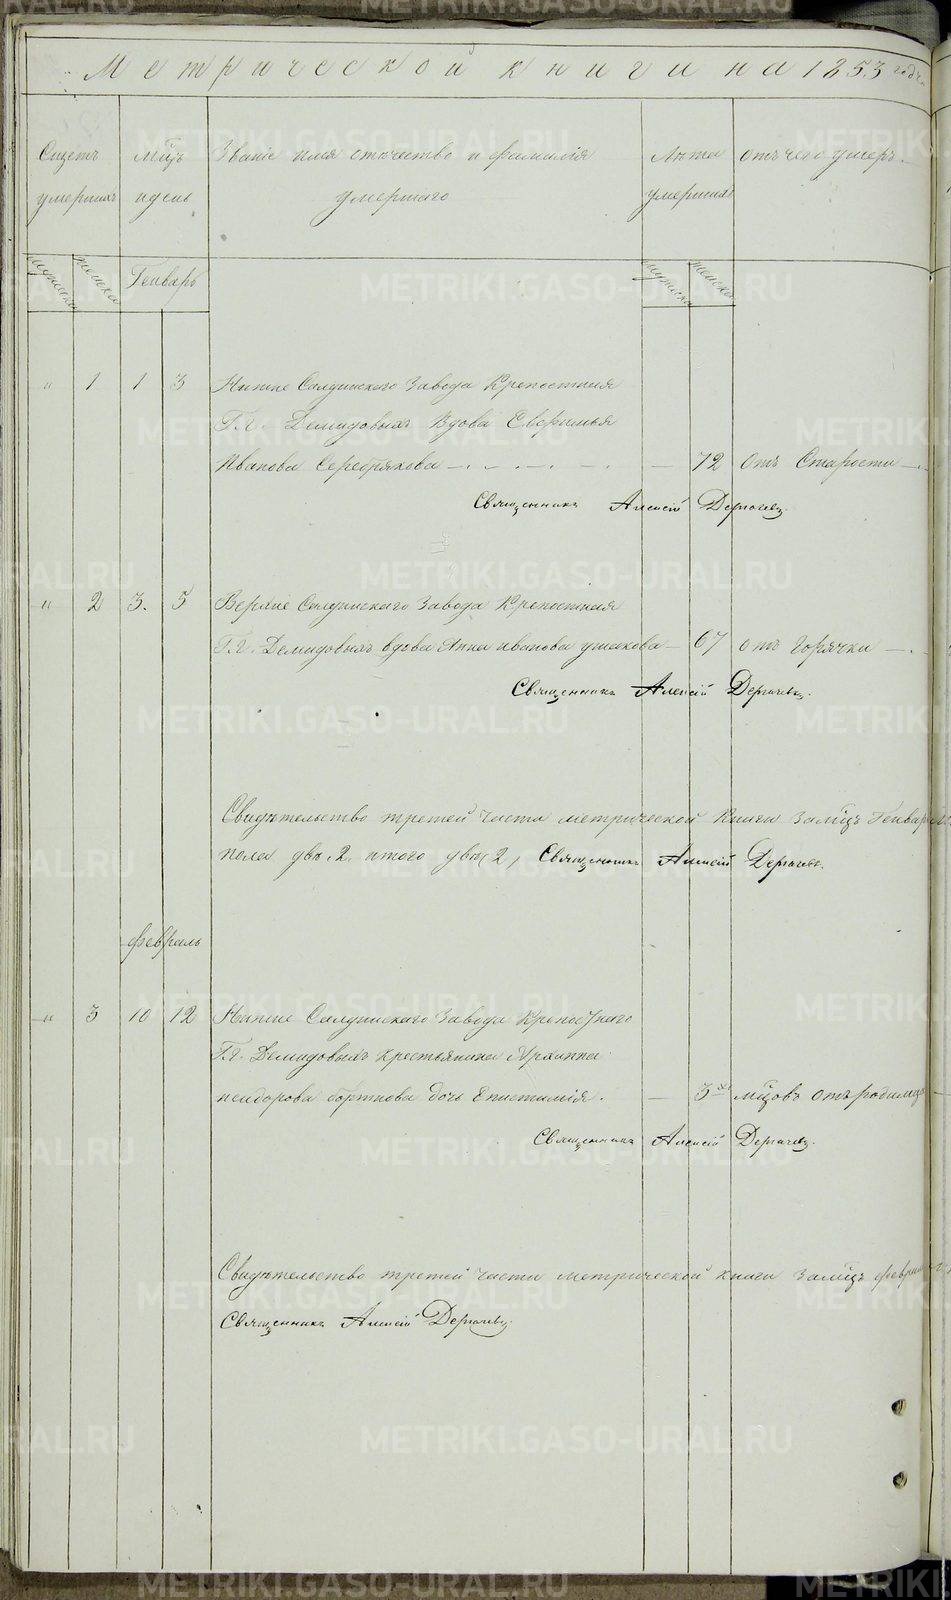 Метрической книги на 1853 годъ.
Счетъ умершихъ
Мцъ и день
Званіе имя отчество и фамилія умершаго
Лѣта умершихъ
отъ чего умеръ.
мужеска
женска
Генварь
мужеска
женска
" 1 1 3 Нижне Салдинскаго Завода Крепостная
Г.г. Демидовыхъ Вдова Евфимья
Иванова Серебрякова — 72 отъ Старости
Священникъ Алексій Дергачевъ.
" 2 3. 5 Верхне Салдинскаго Завода Крепостная
Г.г. Демидовыхъ вдова Анна иванова ушакова — 67 отъ горячки
Священникъ Алексій Дергачевъ.
Свидѣтельство третей части метрической Книги За мцъ Генварь
пола двѣ, 2, итого двѣ, 2, Священникъ Алексій Дергачевъ.
февраль
" 3 10 12 Нижне Салдинскаго Завода крепостнаго
Г.г. Демидовыхъ крестьянина Архиппа
исидорова бортнова дочь Епистимія. — 3 хъ мцовъ отъ родимца
Священникъ Алексій Дергачевъ.
Свидѣтельство третей части метрической книги За мцъ февраль
Священникъ Алексій Дергачевъ.
METRIKI.GASO-URAL.RU